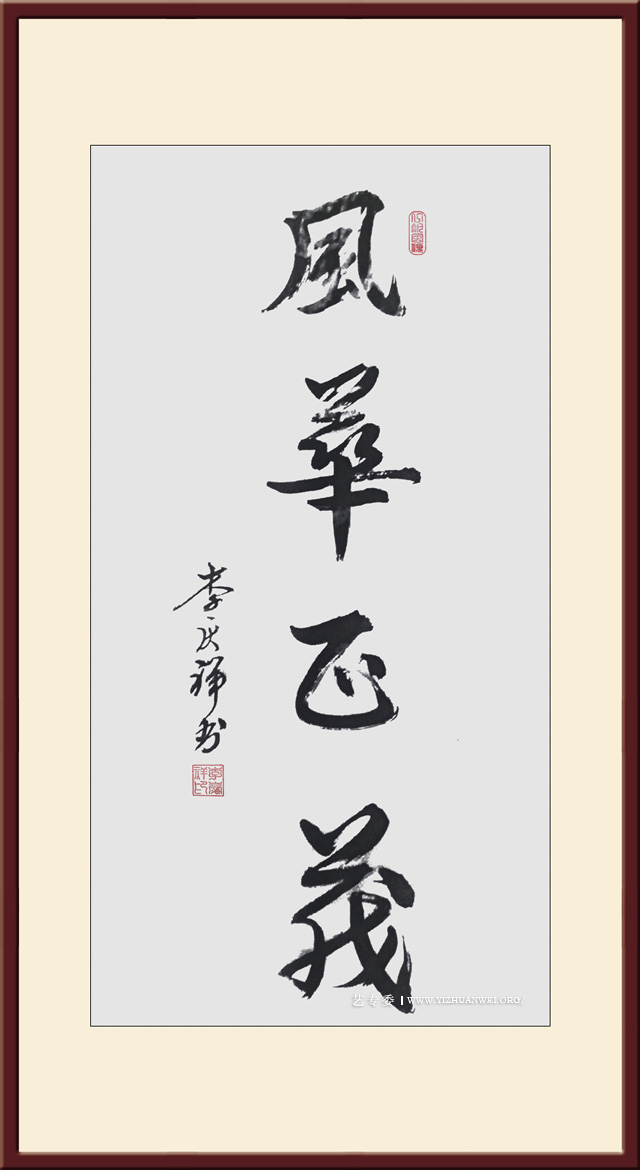 風華正茂
李庆祥书
李慶祥印
艺专委 | WWW.YIZHUANWEI.ORG/